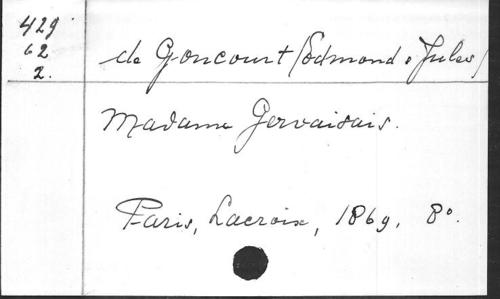 429
62
2.
de Goncourt (Edmond & Jules)
Madame Gervaisais.
Paris, Lacroix, 1869. 8°.